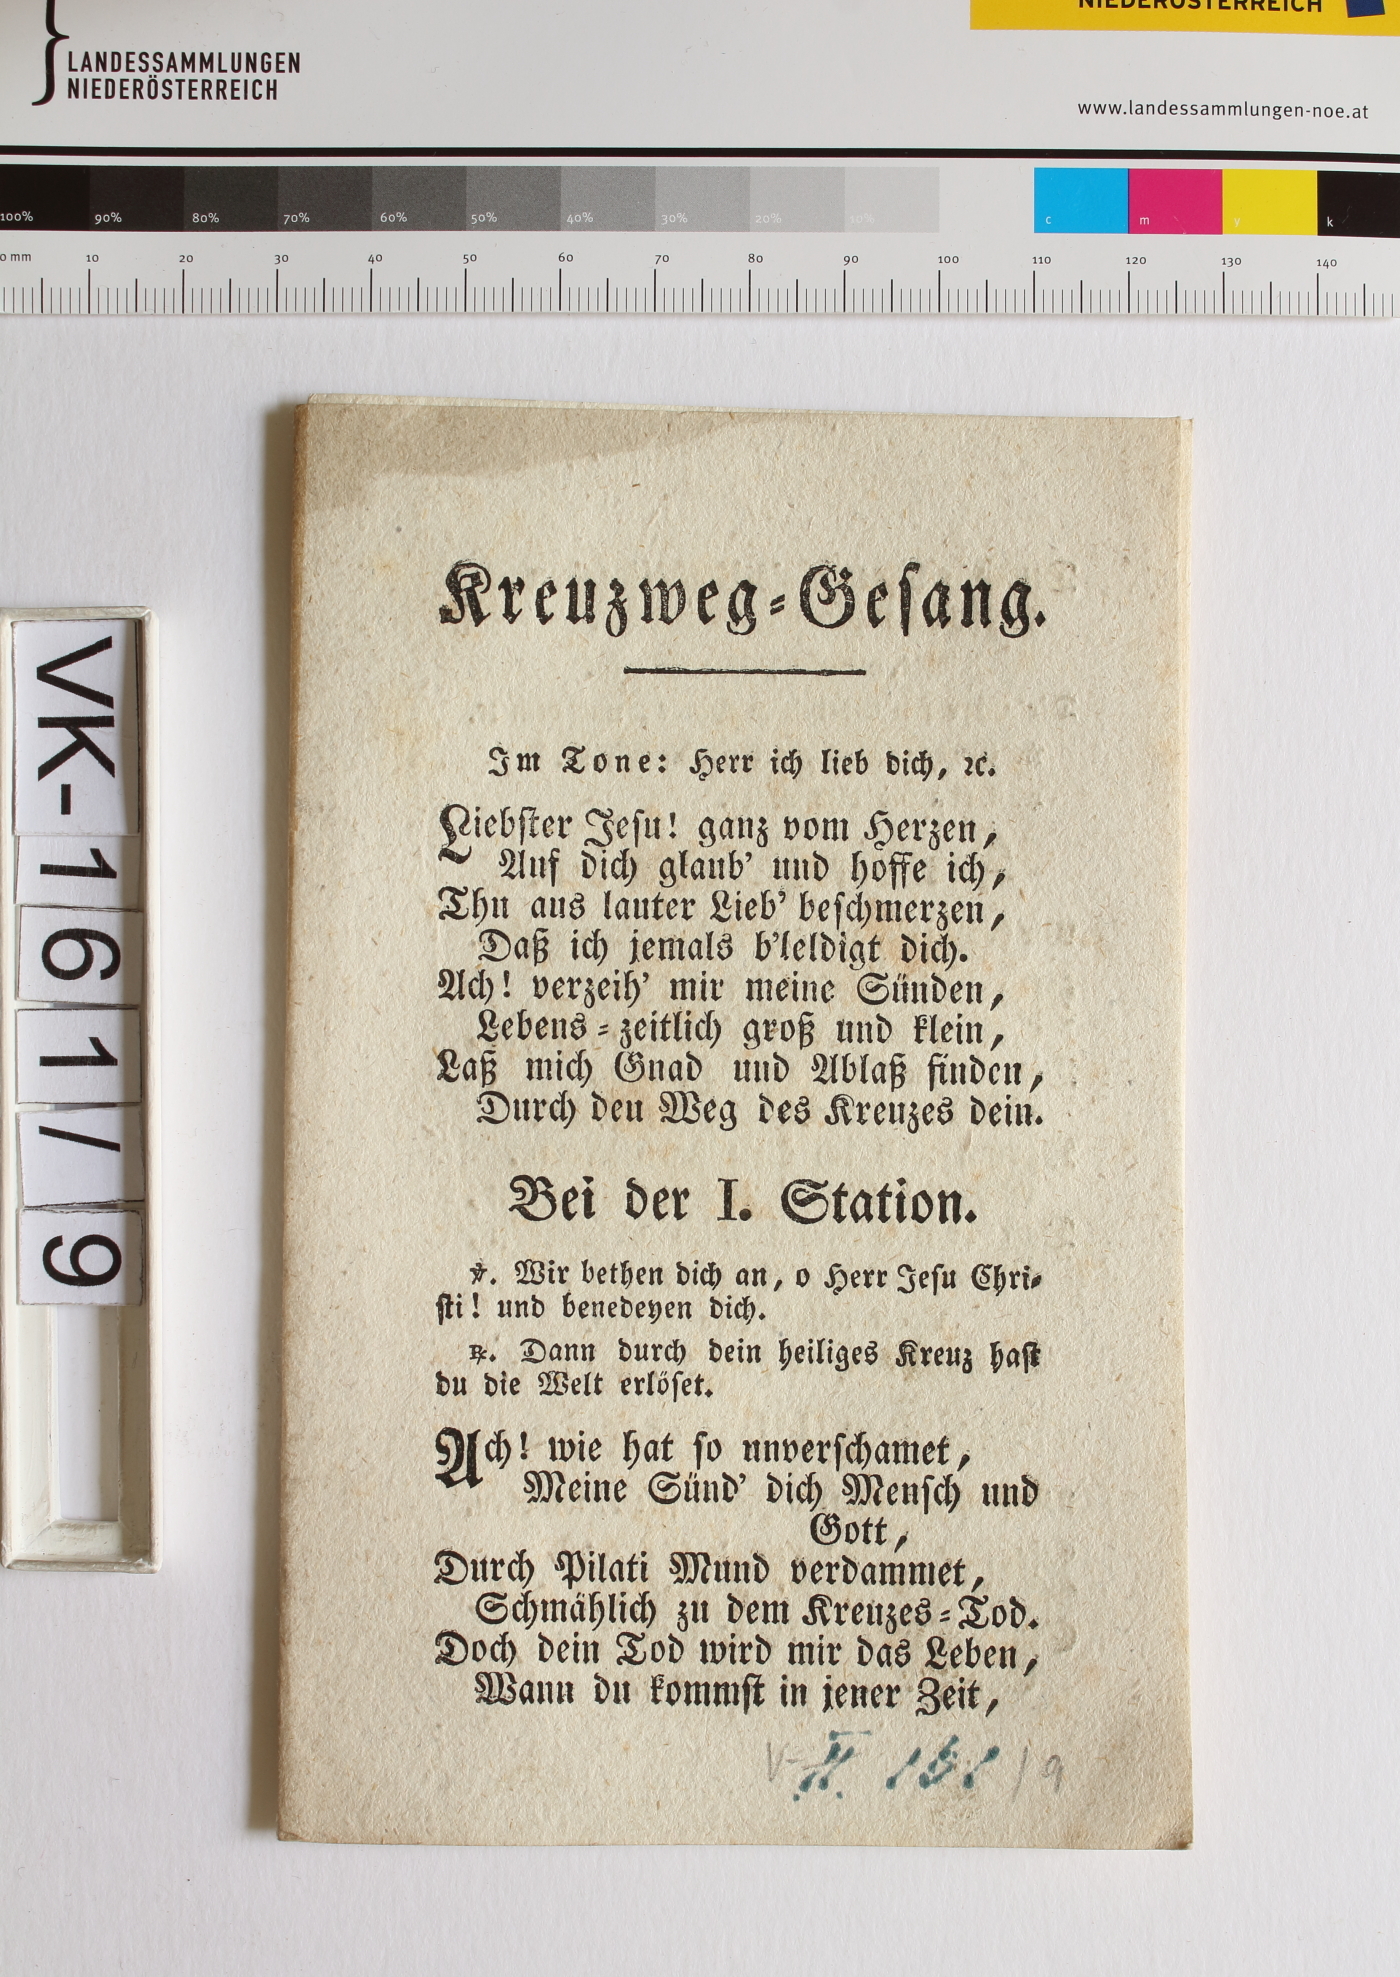 NIEDERÖSTERREICH
LANDESSAMMLUNGEN
NIEDERÖSTERREICH
www.landessammlungen-noe.at
100% 90% 80% 70% 60% 50% 40% 30% 20% 10% c m y k
0 mm 10 20 30 40 50 60 70 80 90 100 110 120 130 140
VK-161/9
Kreuzweg-Gesang.
Im Tone: Herr ich lieb dich, ꝛc.
Liebster Jesu! ganz vom Herzen,
Auf dich glaub' und hoffe ich,
Thu aus lauter Lieb' beschmerzen,
Daß ich jemals b'leldigt dich.
Ach! verzeih' mir meine Sünden,
Lebens-zeitlich groß und klein,
Laß mich Gnad und Ablaß finden,
Durch den Weg des Kreuzes dein.
Bei der I. Station.
℣. Wir bethen dich an, o Herr Jesu Chri-
sti! und benedeyen dich.
℟. Dann durch dein heiliges Kreuz hast
du die Welt erlöset.
Ach! wie hat so unverschamet,
Meine Sünd' dich Mensch und
Gott,
Durch Pilati Mund verdammet,
Schmählich zu dem Kreuzes-Tod.
Doch dein Tod wird mir das Leben,
Wann du kommst in jener Zeit,
/9